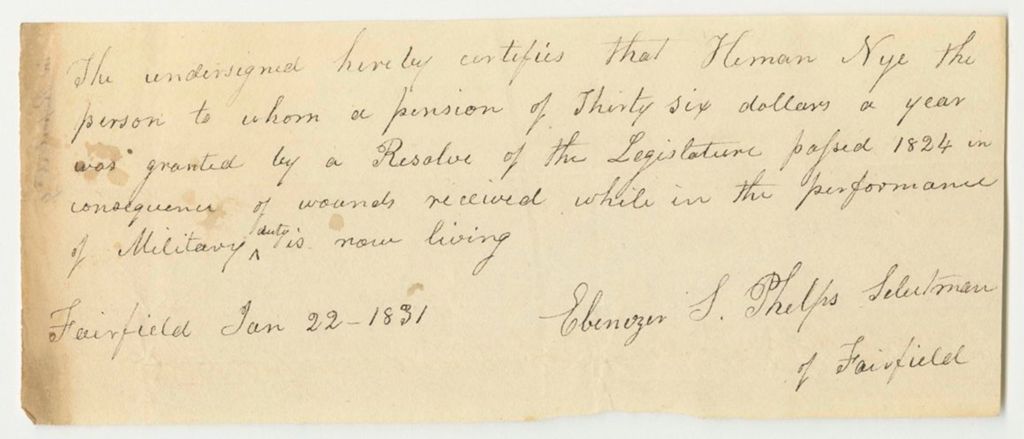 The undersigned hereby certifies that Heman Nye the
person to whom a pension of Thirty six dollars a year
was granted by a Resolve of the Legislature passed 1824 in
consequence of wounds received while in the performance
of Military duty is now living
Fairfield Jan 22 - 1831
Ebenezer S. Phelps Selectman
of Fairfield